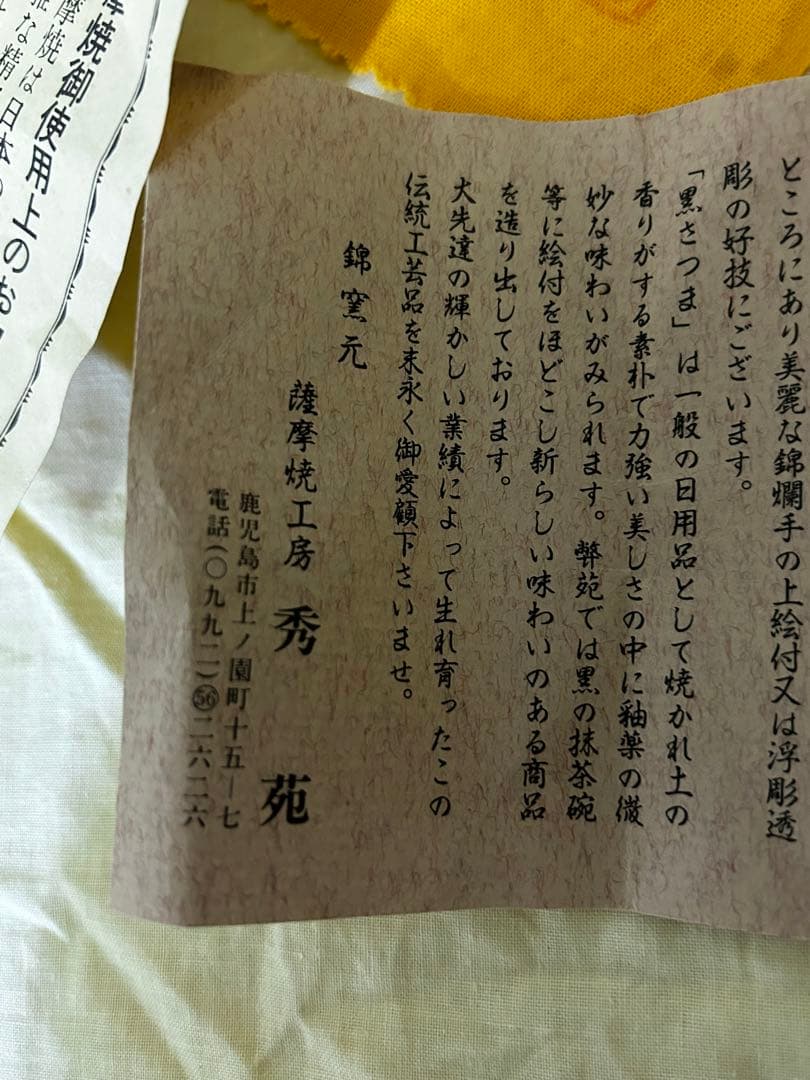 ところにあり美麗な錦爛手の上絵付又は浮彫透
彫の好技にございます。
「黒さつま」は一般の日用品として焼かれ土の
香りがする素朴で力強い美しさの中に釉薬の微
妙な味わいがみられます。弊苑では黒の抹茶碗
等に絵付をほどこし新らしい味わいのある商品
を造り出しております。
大先達の輝かしい業績によって生れ育ったこの
伝統工芸品を末永く御愛顧下さいませ。
錦窯元
薩摩焼工房 秀苑
鹿児島市上ノ園町十五―七
電話(〇九九二)56二六二六
摩焼御使用上のお
摩焼は
な精
日本の